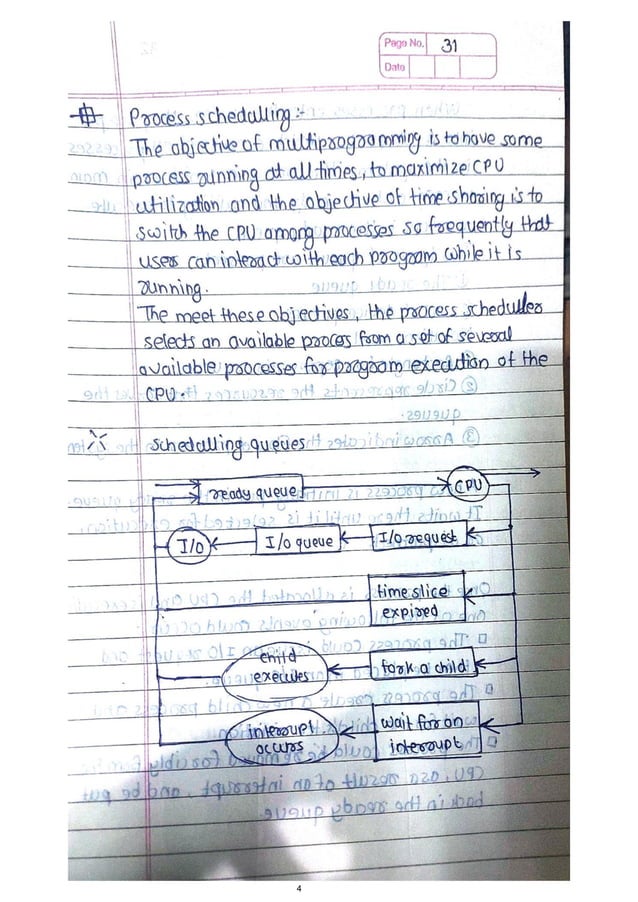 Page No. 31
Date
Process schedulling :-
The objective of multiprogramming is to have some
process running at all times, to maximize CPU
utilization and the objective of time sharing is to
switch the CPU among processes so frequently that
user can interact with each program while it is
running.
The meet these objectives, the process scheduller
selects an available proces from a set of several
available processes for program execution of the
CPU.
schedulling queues
ready queue
CPU
I/O
I/o queue
I/o request
time slice
expired
child
executes
fork a child
interrupt
occurs
wait for an
interrupt
4